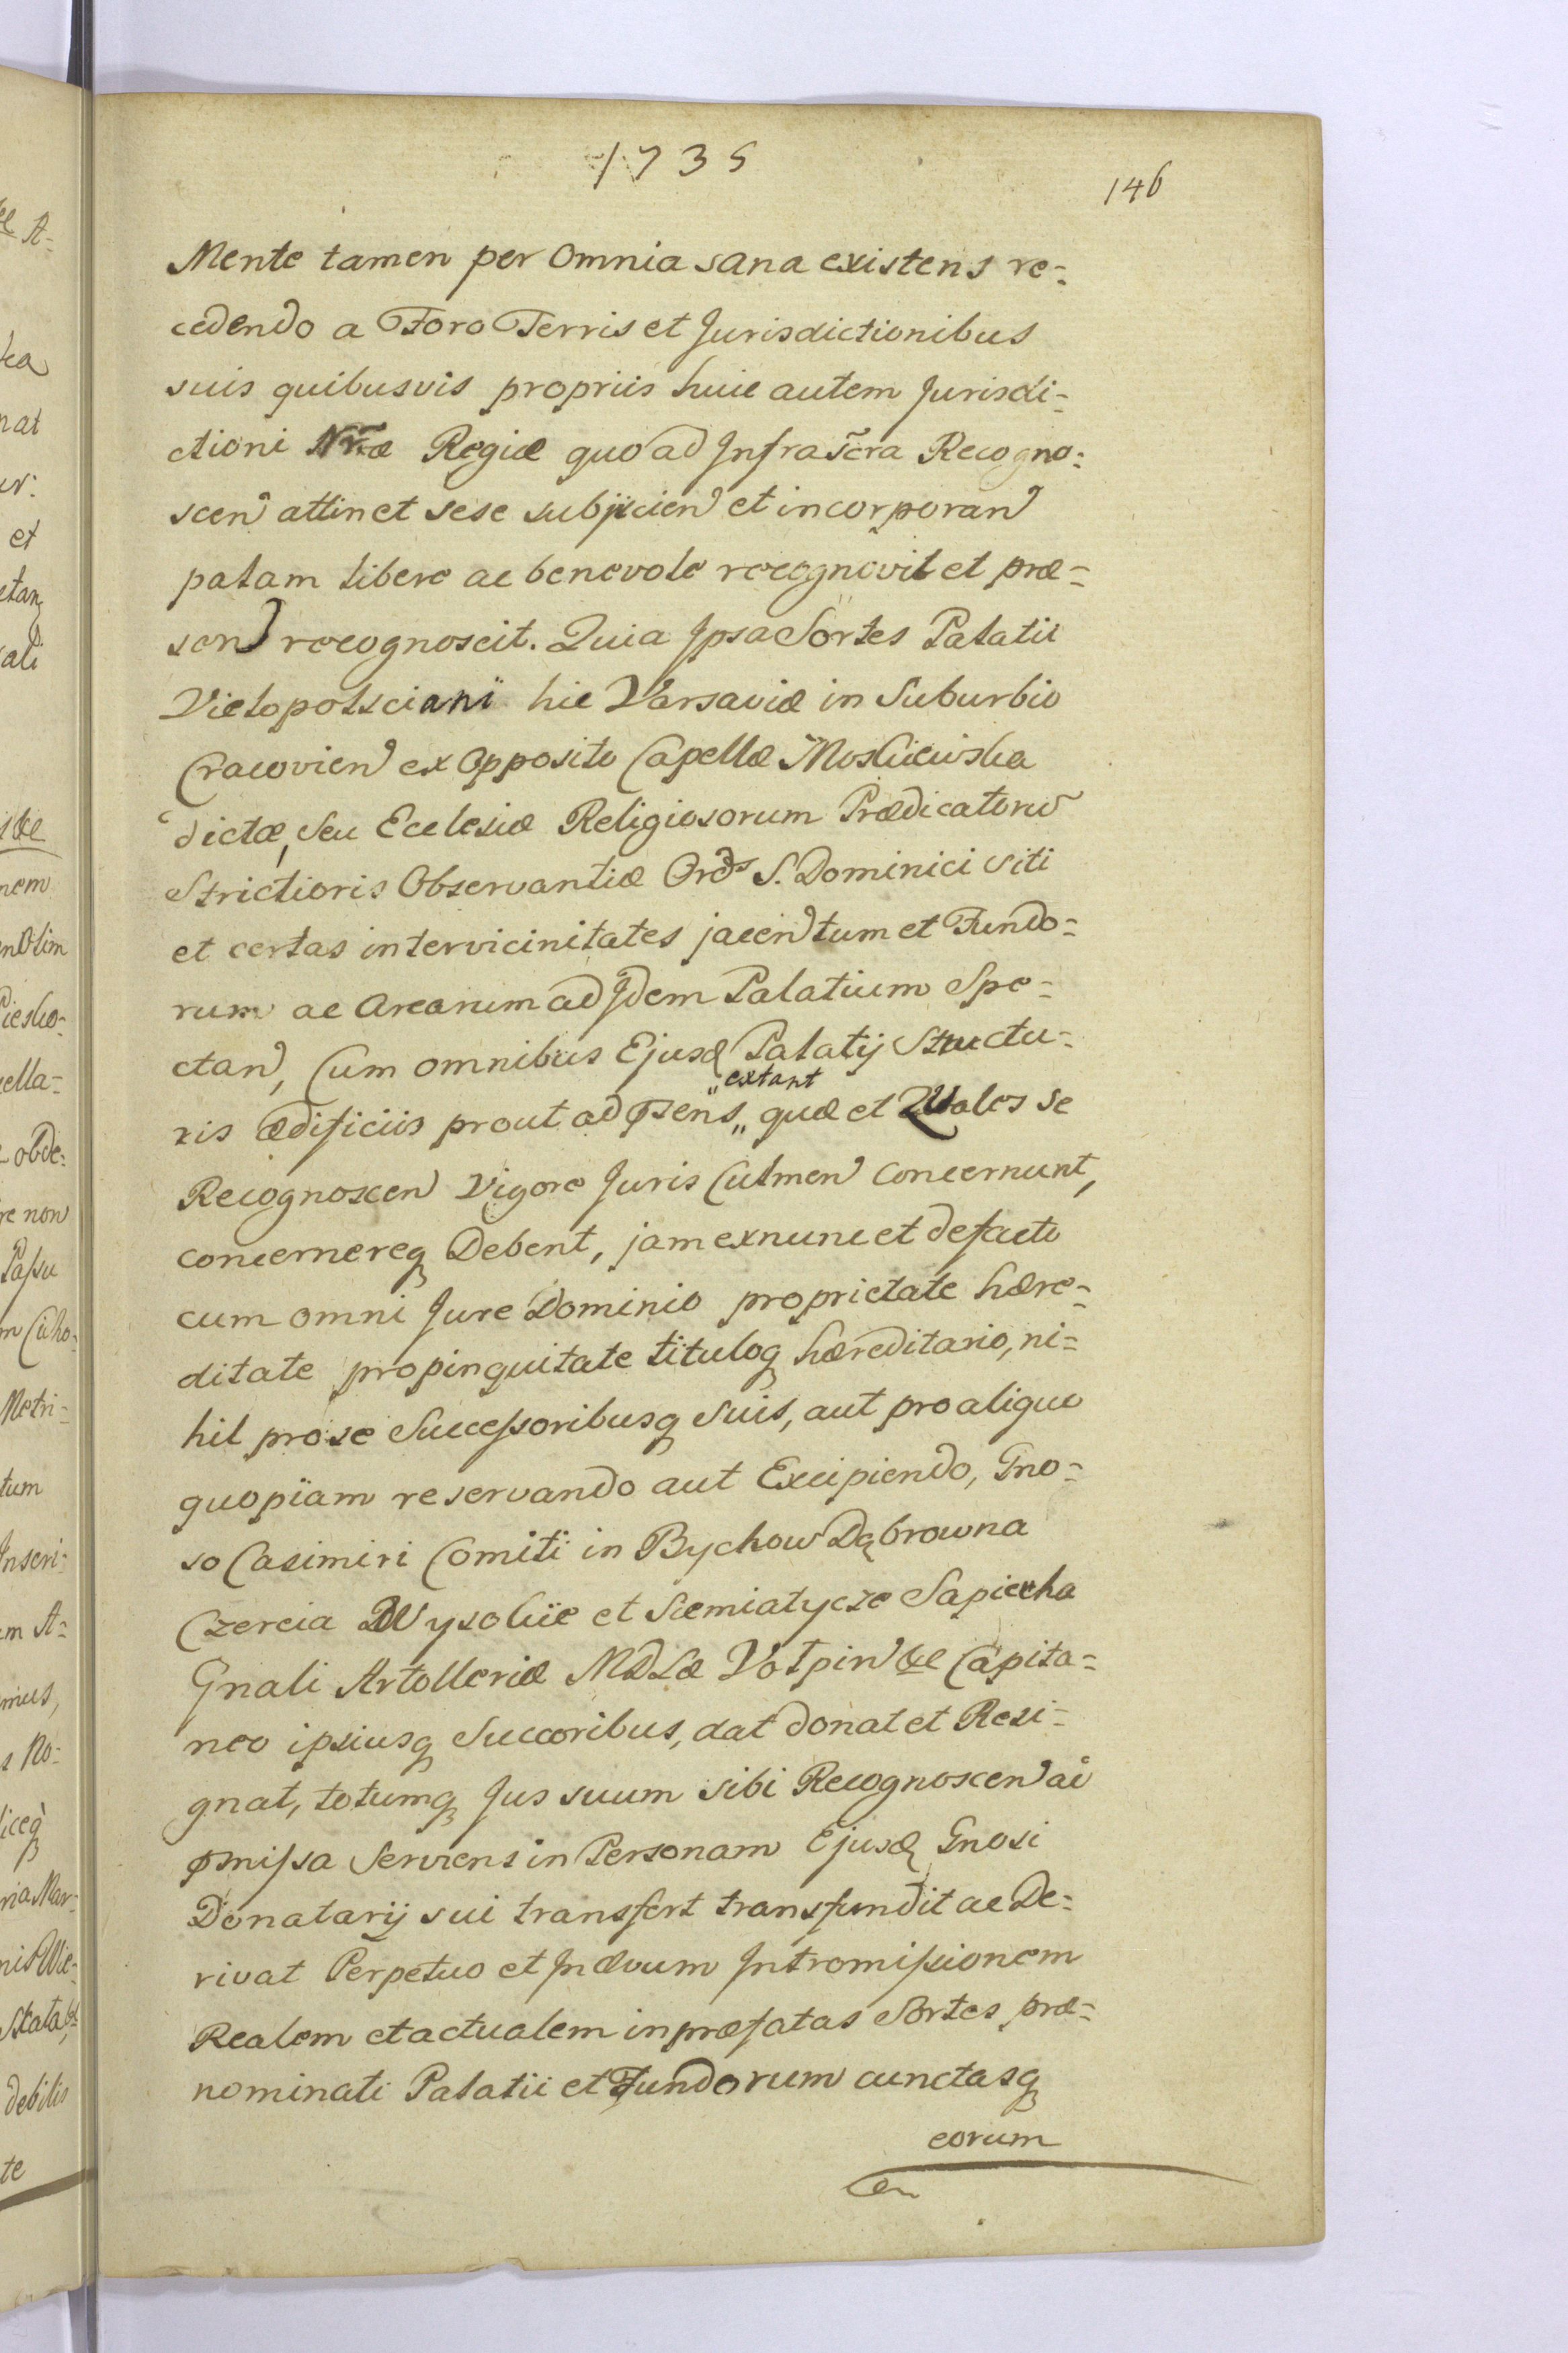 1735
146
Mente tamen per Omnia sana existens re=
cedendo a Foro Terris et Jurisdictionibus
suis quibusvis propriis huic autem Jurisdi=
ctioni Nr̃æ Regiæ quo ad Infrascr̃a Recogno=
scen attinet sese subjicien et incorporan
palam libere ac benevole recognovit et præ=
sen recognoscit. Quia Ipsa Sortes Palatii
Vielopolsciani hic Varsaviæ in Suburbio
Cracovien ex Opposito Capellæ Moskiewska
dictæ, seu Ecclesiæ Religiosorum Prædicatorũ
Strictioris Observantiæ Ords S. Dominici siti
et certas intervicinitates jacen tum et Fundo=
rum ac Arearum ad Idem Palatium Spe=
ctan, Cum omnibus Ejusd Palatij Structu=
extant
ris ædificiis prout ad psens,, quæ et Quales se
Recognoscen Vigore Juris Culmen concernunt,
concernereq Debent, jam exnunc et defacto
cum omni Jure Dominio proprietate hære=
ditate propinquitate tituloq hæreditario, ni=
hil pro se Successoribusq suis, aut pro aliquo
quopiam reservando aut Excipiendo, Gno=
so Casimiri Comiti in Bychow Dąbrowna
Czereia Wysokie et Siemiatycze Sapieha
Gnali Artolleriæ MDLæ Volpin &c Capita=
neo ipsiusq Succoribus, dat donat et Resi=
gnat, totumq Jus suum sibi Recognoscen ad
pmissa Serviens in Personam Ejusd Gnosi
Donatarij sui transfert transfundit ac De=
rivat Perpetuo et Inævum Intromissionem
Realem et actualem in præfatas Sortes præ=
nominati Palatii et Fundorum cunctasq
eorum